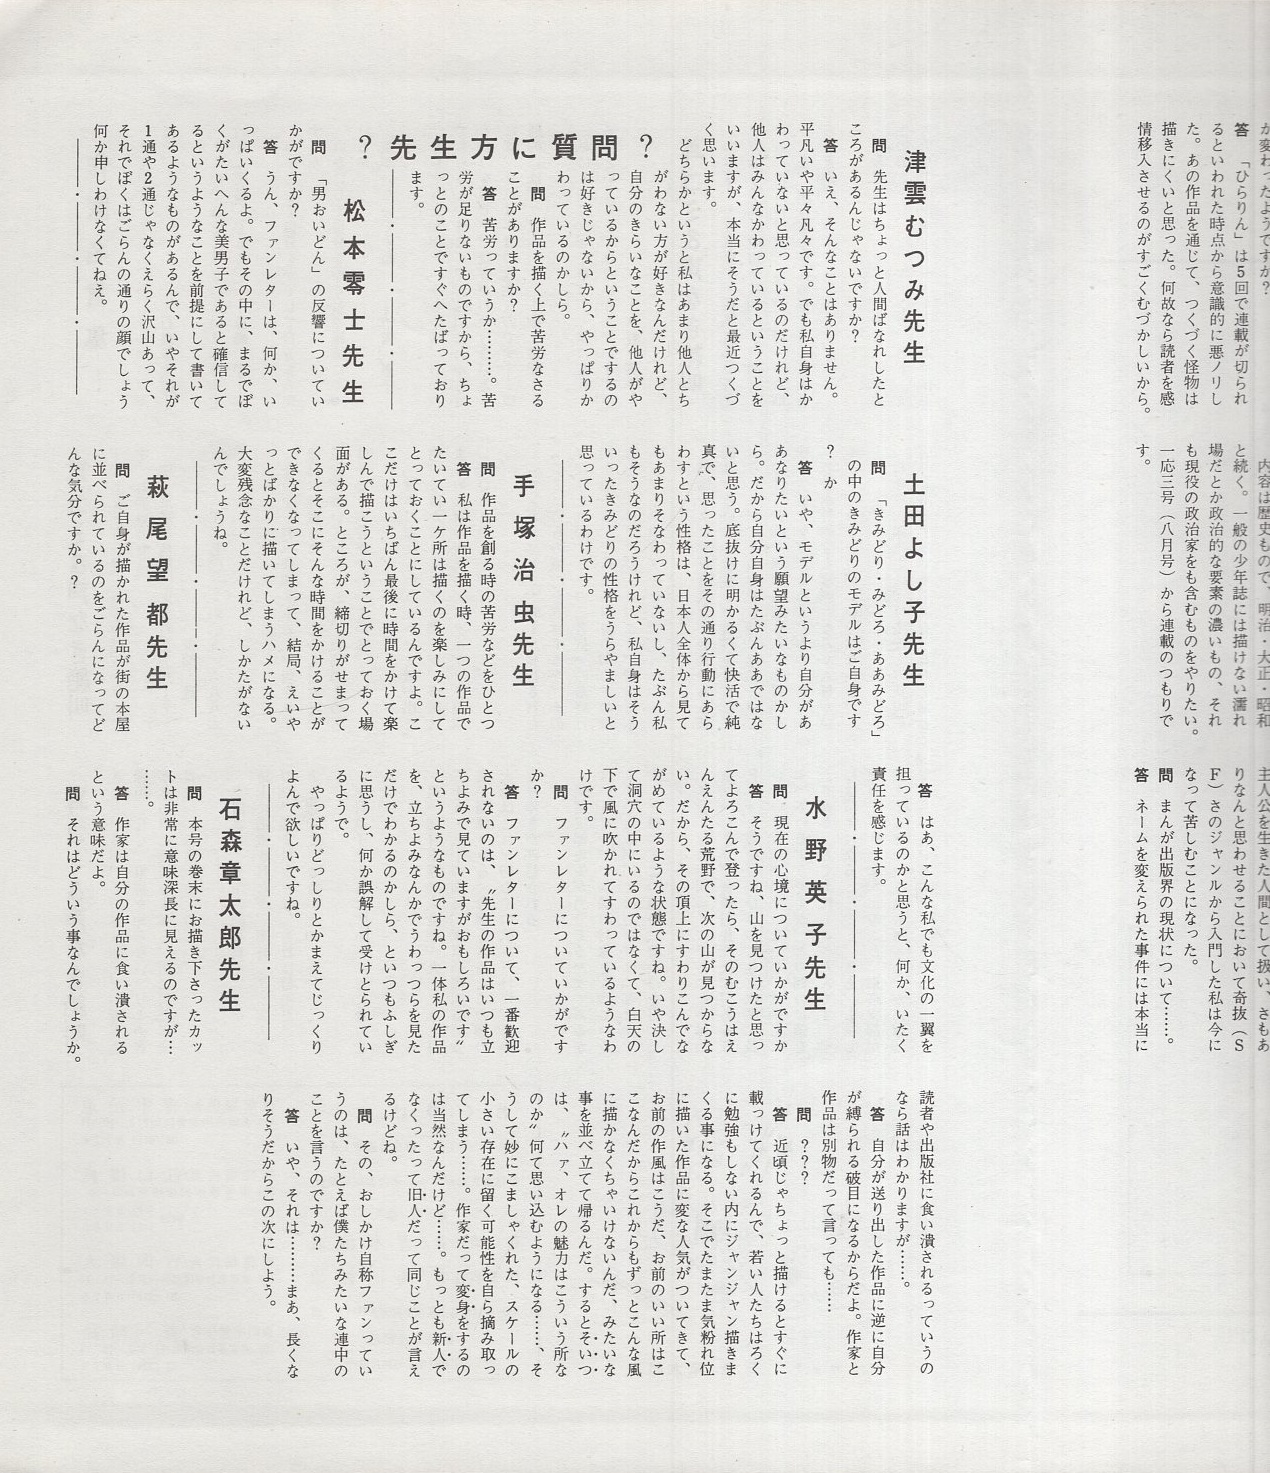 が変わったようですが？
答　「ひらりん」は５回で連載が切られ
るといわれた時点から意識的に悪ノリし
た。あの作品を通じて、つくづく怪物は
描きにくいと思った。何故なら読者を感
情移入させるのがすごくむづかしいから。
内容は歴史もので、明治・大正・昭和
と続く。一般の少年誌には描けない濡れ
場だとか政治的な要素の濃いもの、それ
も現役の政治家をも含むものをやりたい。
一応三号（八月号）から連載のつもりで
す。
主人公を生きた人間として扱い、さもあ
りなんと思わせることにおいて奇抜（Ｓ
Ｆ）さのジャンルから入門した私は今に
なって苦しむことになった。
問　まんが出版界の現状について……。
答　ネームを変えられた事件には本当に
？先生方に質問？
津雲むつみ先生
問　先生はちょっと人間ばなれしたと
ころがあるんじゃないですか？
答　いえ、そんなことはありません。
平凡いや平々凡々です。でも私自身はか
わっていないと思っているのだけれど、
他人はみんなかわっているということを
いいますが、本当にそうだと最近つくづ
く思います。
どちらかというと私はあまり他人とち
がわない方が好きなんだけれど、
自分のきらいなことを、他人がや
っているからということでするの
は好きじゃないから、やっぱりか
わっているのかしら。
問　作品を描く上で苦労なさる
ことがありますか？
答　苦労っていうか………。苦
労が足りないものですから、ちょ
っとのことですぐへたばっており
ます。
松本零士先生
問　「男おいどん」の反響についてい
かがですか？
答　うん、ファンレターは、何か、い
っぱいくるよ。でもその中に、まるでぼ
くがたいへんな美男子であると確信して
るというようなことを前提にして書いて
あるようなものがあるんで、いやそれが
１通や２通じゃなくえらく沢山あって、
それでぼくはごらんの通りの顔でしょう
何か申しわけなくてねえ。
土田よし子先生
問　「きみどり・みどろ・ああみどろ」
の中のきみどりのモデルはご自身です
か
？
答　いや、モデルというより自分があ
あなりたいという願望みたいなものかし
ら。だから自分自身はたぶんああではな
いと思う。底抜けに明かるくて快活で純
真で、思ったことをその通り行動にあら
わすという性格は、日本人全体から見て
もあまりそなわっていないし、たぶん私
もそうなのだろうけれど、私自身はそう
いったきみどりの性格をうらやましいと
思っているわけです。
手塚治虫先生
問　作品を創る時の苦労などをひとつ
答　私は作品を描く時、一つの作品で
たいてい一ケ所は描くのを楽しみにして
とっておくことにしているんですよ。こ
こだけはいちばん最後に時間をかけて楽
しんで描こうということでとっておく場
面がある。ところが、締切りがせまって
くるとそこにそんな時間をかけることが
できなくなってしまって、結局、えいや
っとばかりに描いてしまうハメになる。
大変残念なことだけれど、しかたがない
んでしょうね。
萩尾望都先生
問　ご自身が描かれた作品が街の本屋
に並べられているのをごらんになってど
んな気分ですか。？
答　はあ、こんな私でも文化の一翼を
担っているのかと思うと、何か、いたく
責任を感じます。
水野英子先生
問　現在の心境についていかがですか
答　そうですね、山を見つけたと思っ
てよろこんで登ったら、そのむこうはえ
んえんたる荒野で、次の山が見つからな
い。だから、その頂上にすわりこんでな
がめているような状態ですね。いや決し
て洞穴の中にいるのではなくて、白天の
下で風に吹かれてすわっているようなわ
けです。
問　ファンレターについていかがです
か？
答　ファンレターについて、一番歓迎
されないのは、〝先生の作品はいつも立
ちよみで見ていますがおもしろいです〟
というようなものですね。一体私の作品
を、立ちよみなんかでうわっつらを見た
だけでわかるのかしら、といつもふしぎ
に思うし、何か誤解して受けとられてい
るようで。
やっぱりどっしりとかまえてじっくり
よんで欲しいですね。
石森章太郎先生
問　本号の巻末にお描き下さったカッ
トは非常に意味深長に見えるのですが…
……。
答　作家は自分の作品に食い潰される
という意味だよ。
問　それはどういう事なんでしょうか。
読者や出版社に食い潰されるっていうの
なら話はわかりますが……。
答　自分が送り出した作品に逆に自分
が縛られる破目になるからだよ。作家と
作品は別物だって言っても……
問　？？？
答　近頃じゃちょっと描けるとすぐに
載っけてくれるんで、若い人たちはろく
に勉強もしない内にジャンジャン描きま
くる事になる。そこでたまたま気粉れ位
に描いた作品に変な人気がついてきて、
お前の作風はこうだ、お前のいい所はこ
こなんだからこれからもずっとこんな風
に描かなくちゃいけないんだ、みたいな
事を並べ立てて帰るんだ。するとそいつ
は、〝ハァ、オレの魅力はこういう所な
のか〟何て思い込むようになる……、そ
うして妙にこましゃくれた、スケールの
小さい存在に留く可能性を自ら摘み取っ
てしまう……。作家だって変身をするの
は当然なんだけど……。もっとも新人で
なくったって旧人だって同じことが言え
るけどね。
問　その、おしかけ自称ファンってい
うのは、たとえば僕たちみたいな連中の
ことを言うのですか？
答　いや、それは………まあ、長くな
りそうだからこの次にしよう。